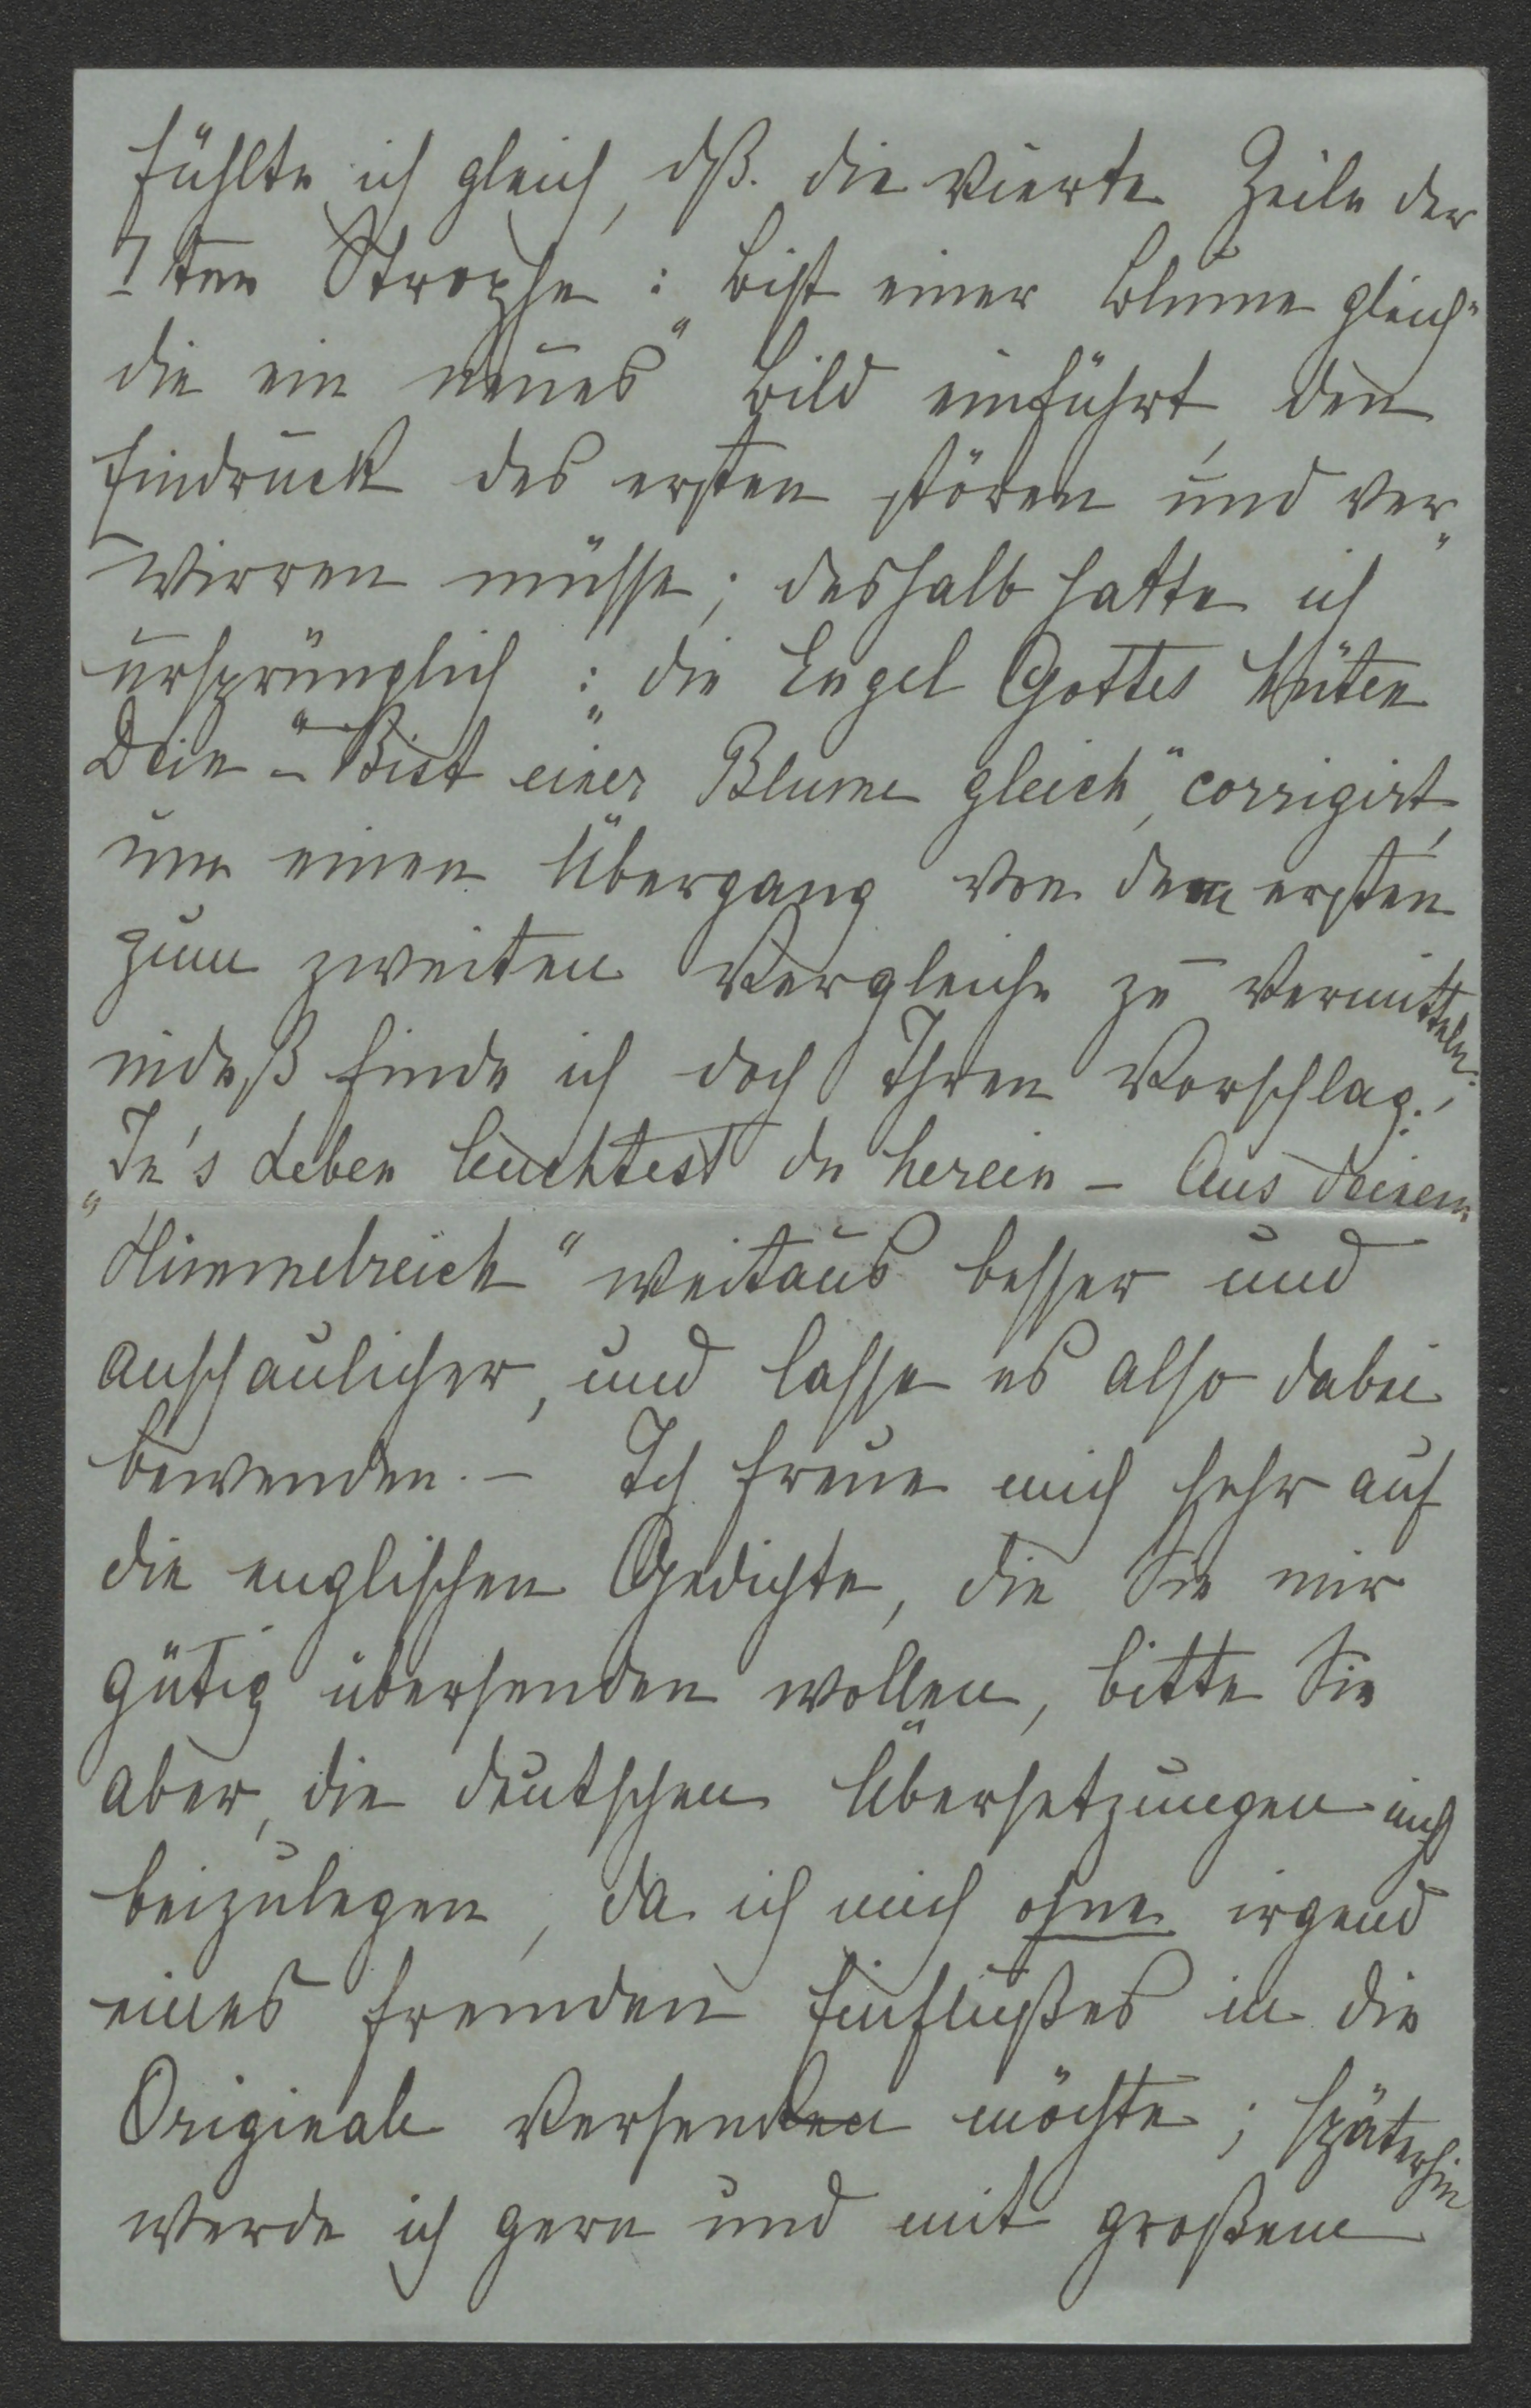 fühlte ich gleich, dß. die vierte Zeile der
7ten Strophe: „Bist einer Blume gleich"
die ein neues Bild einführt, den
Eindruck des ersten stören und ver„
wirren müsse; deshalb hatte ich
ursprünglich: „die Engel Gottes hüten
Dein" – „Bist einer Blume gleich," corrigirt,
um einen Übergang von dem ersten
zum zweiten Vergleiche zu vermitteln.
indeß finde ich doch Ihren Vorschlag:
„In's Leben leuchtest du herein – Aus deinem
Himmelreich" weitaus besser und
anschaulicher, und lasse es also dabei
bewenden. – Ich freue mich sehr auf
die englischen Gedichte, die Sie mir
gütig übersenden wollen, bitte Sie
aber, die deutschen Übersetzungen nicht
beizulegen, da ich mich ohne irgend
eines fremden Einflußes in die
Originale versenken möchte; späterhin
werde ich gern und mit großem